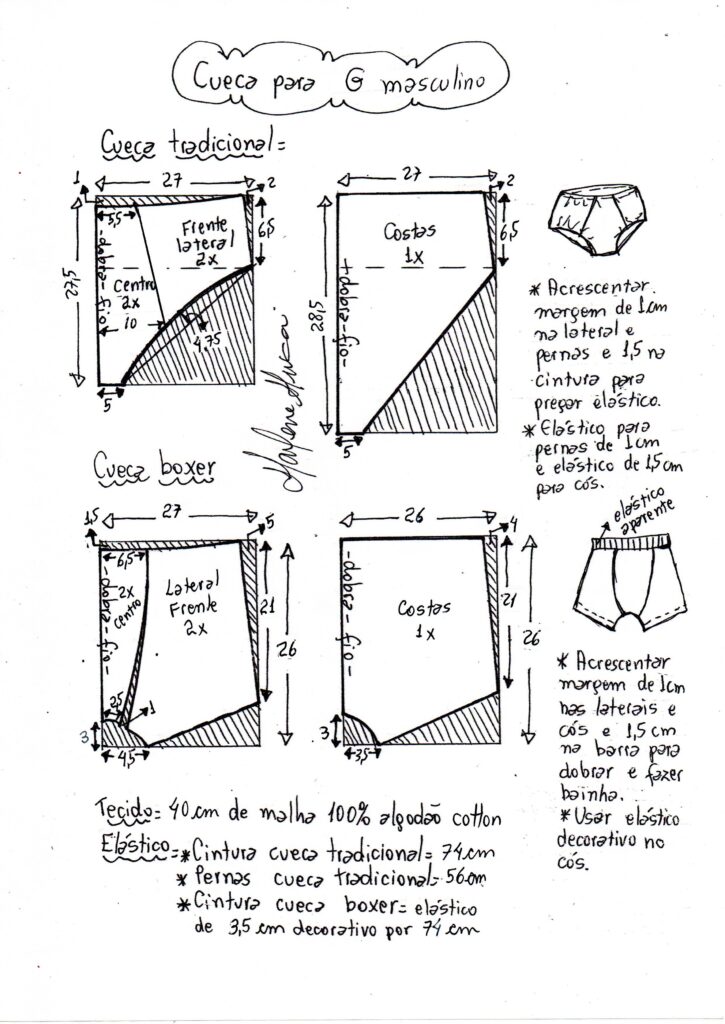 Cueca para G masculino
Cueca tradicional=
1
27
2
5,5
27,5
6,5
Frente
lateral
2x
-dobra-fio-
Centro
2x
10
4,75
5
27
2
Costas
1x
6,5
28,5
+dobra-fio-
5
* Acrescentar
margem de 1cm
na lateral e
pernas e 1,5 na
cintura para
pregar elástico.
* Elástico para
pernas de 1cm
e elástico de 1,5cm
para cós.
Marlene Mukai
Cueca boxer
1,5
27
5
6,5
-dobra-fio-
2x
centro
Lateral
Frente
2x
21
26
2,5
1
3
4,5
26
4
-dobra-fio-
Costas
1x
21
26
3
3,5
elástico
aparente
* Acrescentar
margem de 1cm
nas laterais e
cós e 1,5cm
na barra para
dobrar e fazer
bainha.
* Usar elástico
decorativo no
cós.
Tecido= 40cm de malha 100% algodão cotton
Elástico=*Cintura cueca tradicional= 74cm
* Pernas cueca tradicional= 56cm
*Cintura cueca boxer= elástico
de 3,5cm decorativo por 74cm